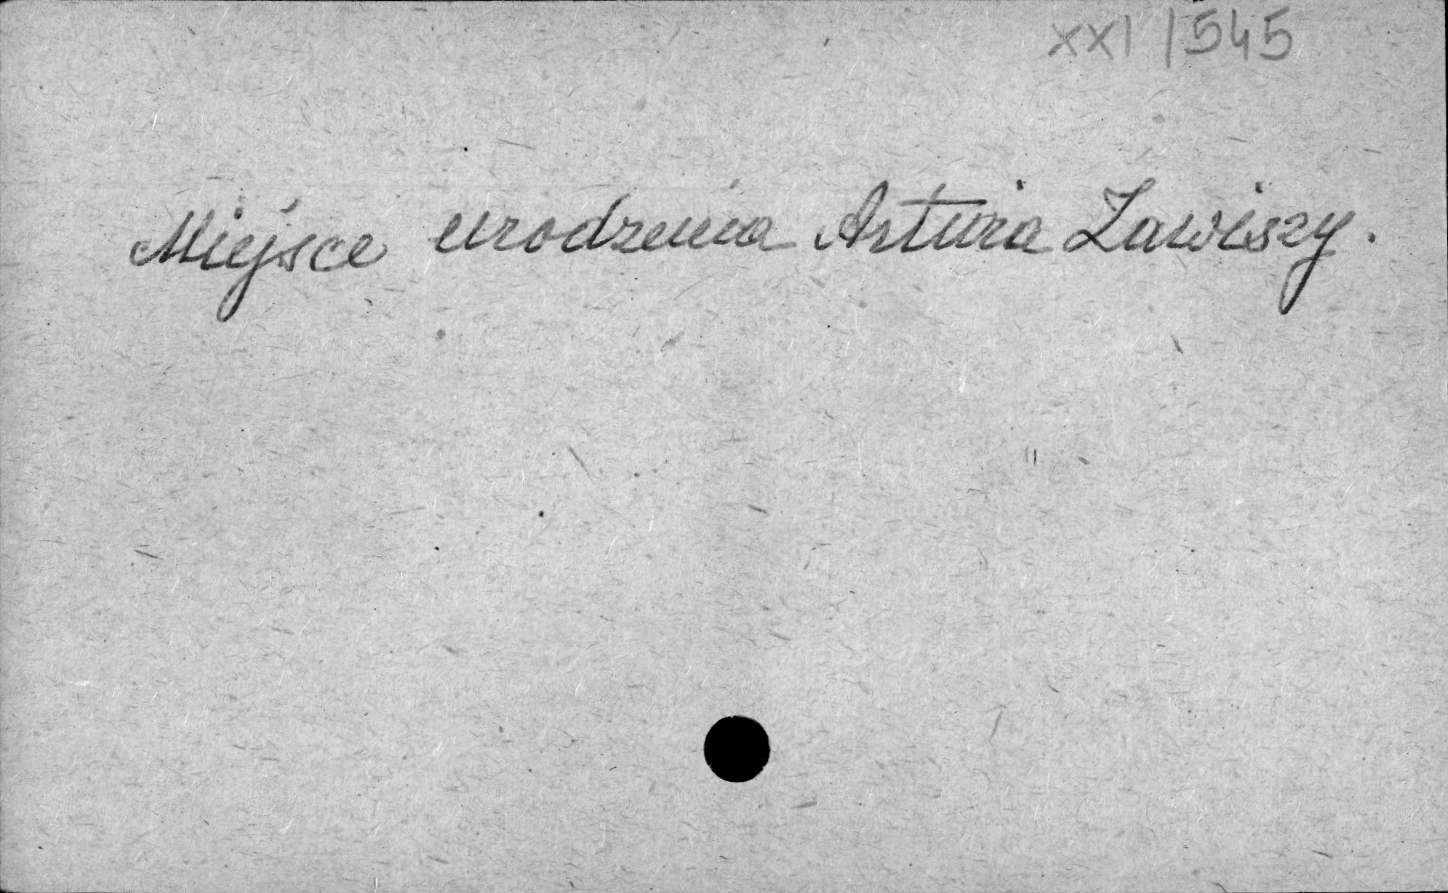 XXI/545
Miejsce urodzenia Artura Zawiszy.